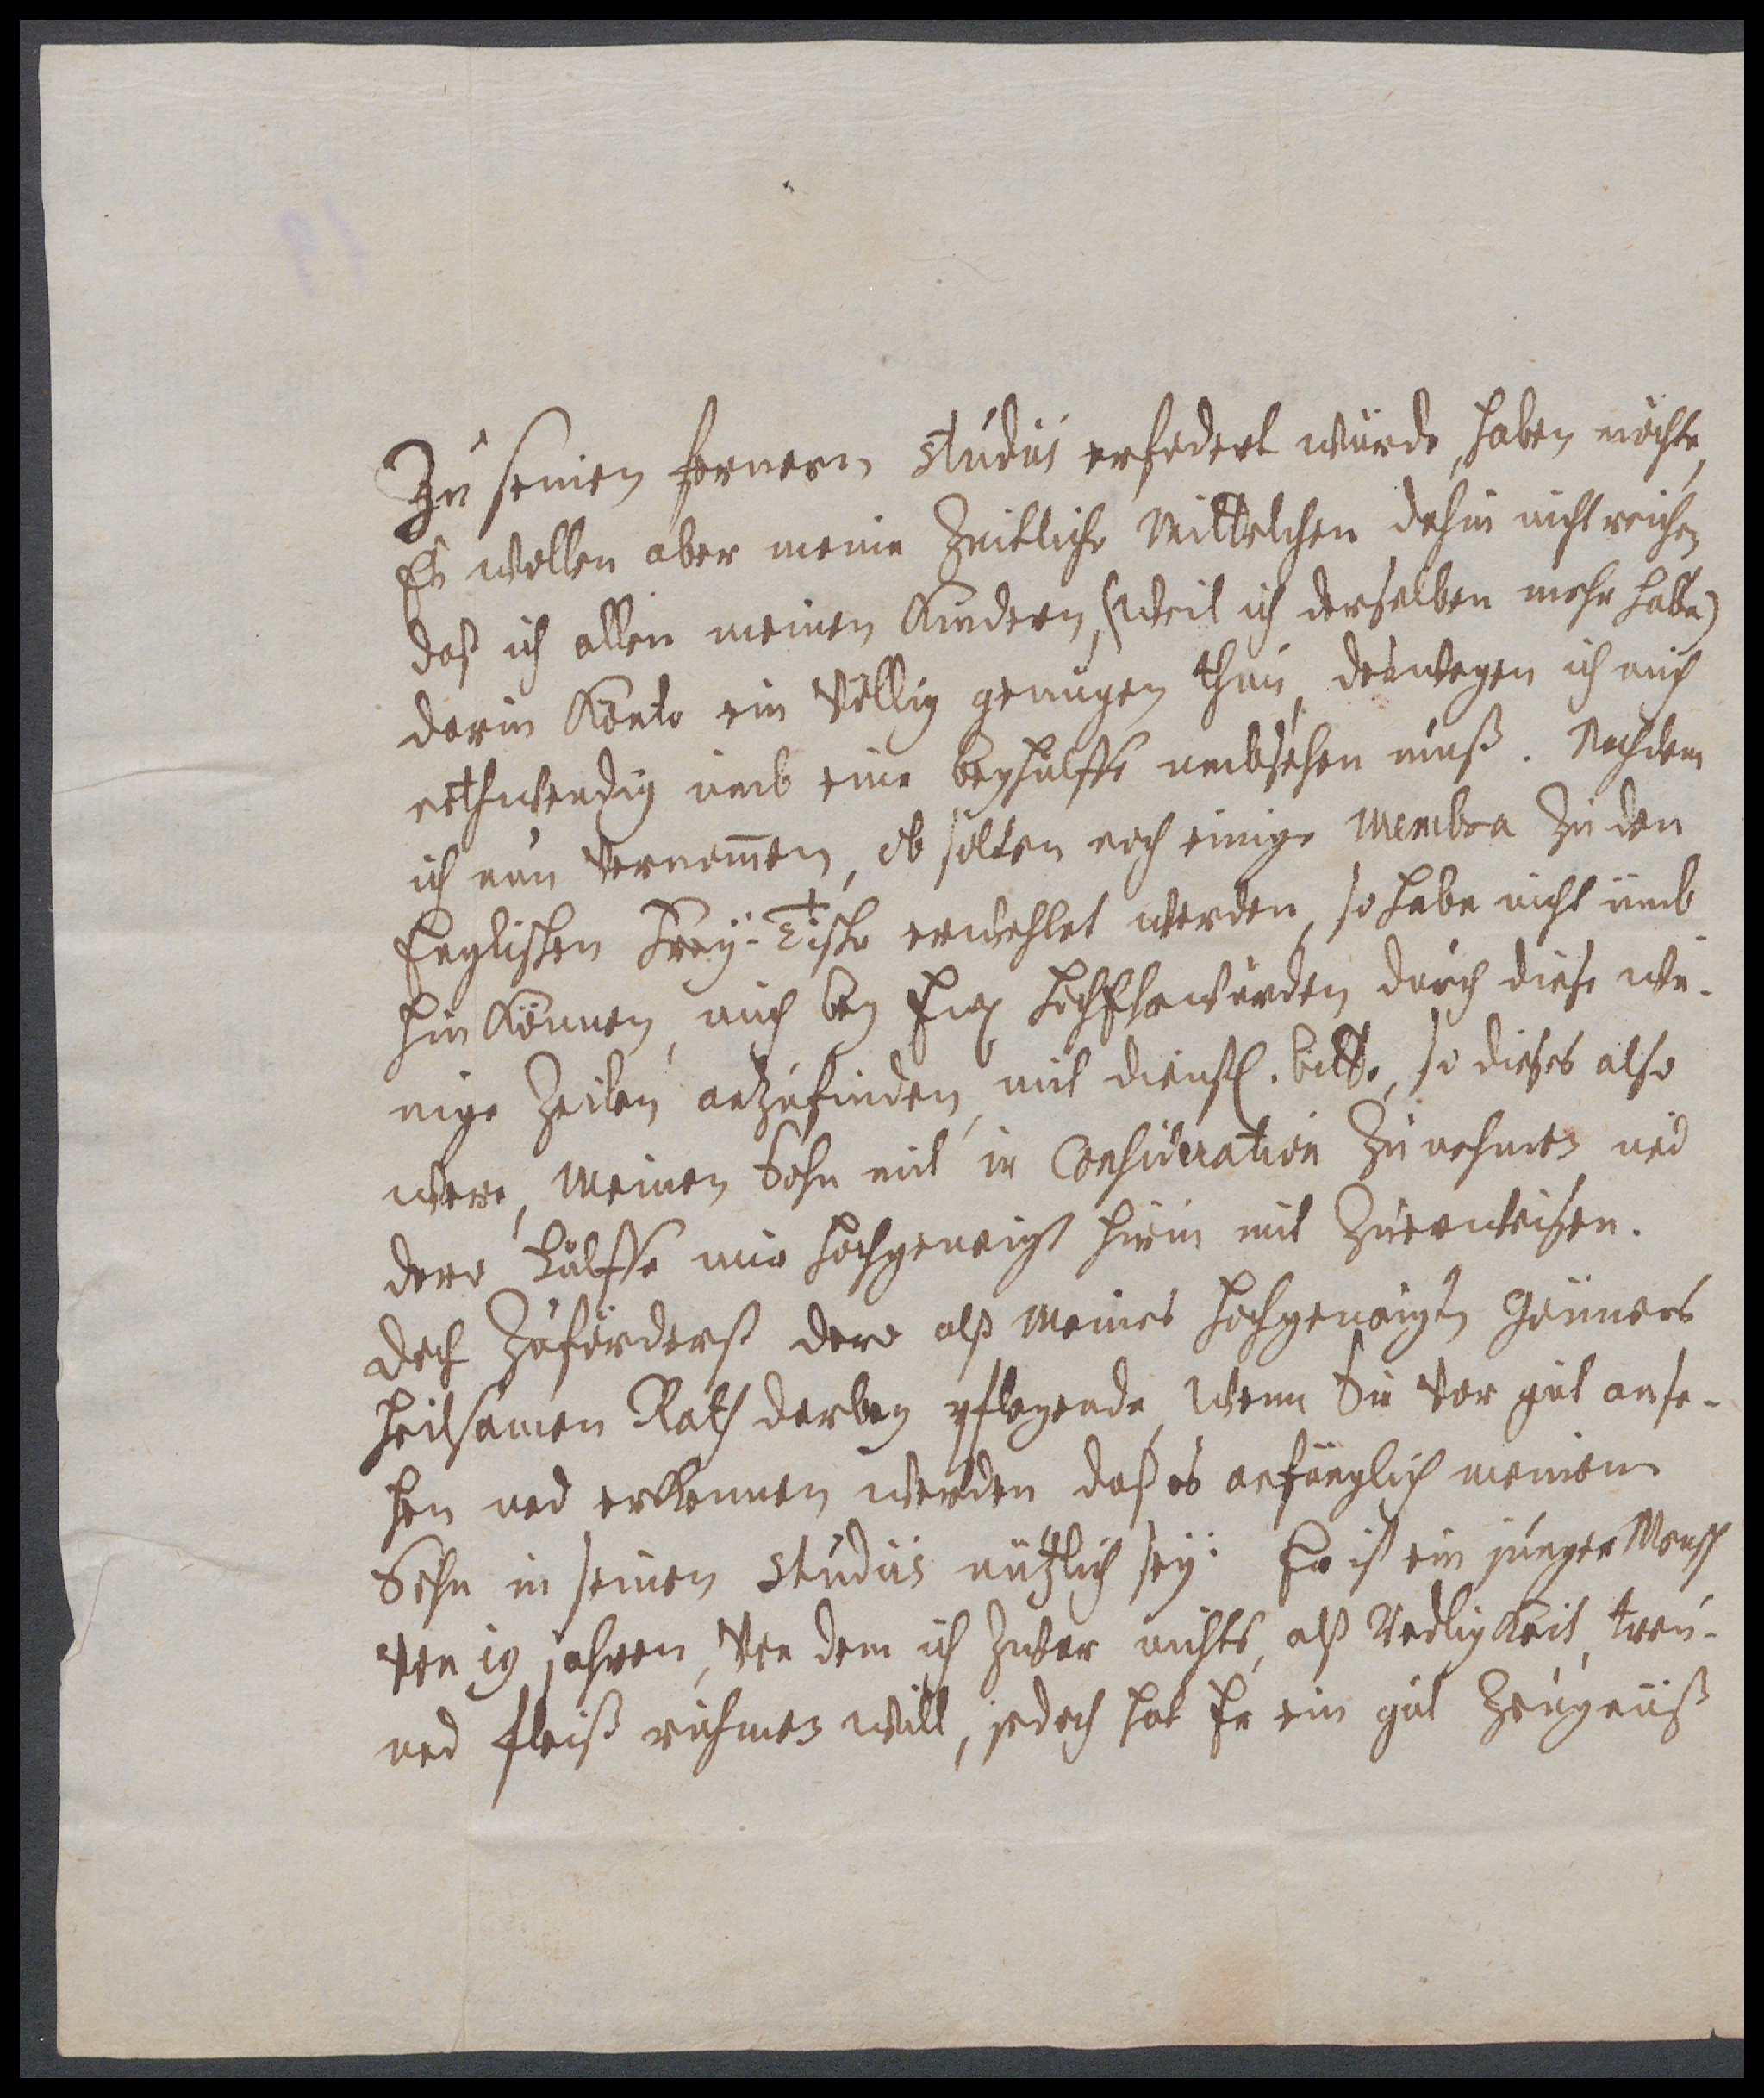 Zu seinen fernern studiis erfodert würde, haben möchte,
Es wollen aber meine Zeitliche Mittelchen dahin nicht reichen
daß ich allen meinen Kindern, (weil ich derselben mehr habe)
darin Könte ein völlig genugen thun, deswegen ich mich
nothwendig umb eine beyhülffe umbsehen muß. Nachdem
ich nun vernom̄en, ob solten noch einige Membra zu den
Englischen Frey-Tische erwehlet werden, so habe nicht umb
hin Können, mich bey Ew. HochEhrwürden durch diese we-
nige Zeilen anzufinden, mit dienstl. bitte, so dieses also
were, Meinen Sohn mit in Consideration zu nehmen und
dero Hülffe mir hochgeneigt hirin mit Zuerweisen.
doch Zuförderst dero alß Meines hochgeneigten Gönners
heilsamen Rath darbey pflegende, wenn Sie vor gut anse-
hen und erkennen werden daß es anfänglich meinem
Sohn in seinen studiis nützlich sey: Er ist ein junger Mensch
von 19 jahren, Von dem ich zwar nichts, alß RedligKeit, treu-
und fleiß rühmen will, jedoch hat Er ein gut Zeugnüß